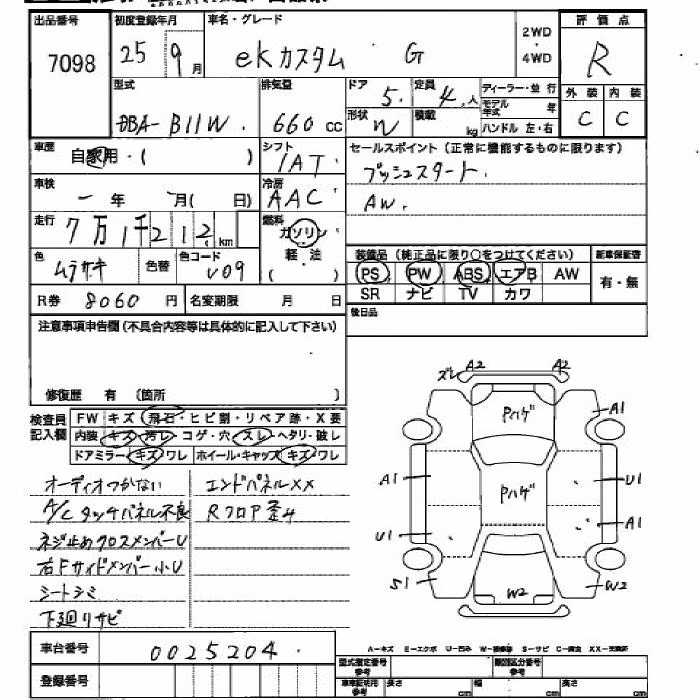 出品番号 初度登録年月 車名・グレード 2WD・4WD 評価点
7098 25 9月 eKカスタム G R
型式 排気量 ドア 定員 ディーラー・並行 外装 内装
DBA-B11W. 660cc 5. 4.人 モデル年式 年 C C
形状 積載 kg ハンドル 左・右
車歴 自家用・( ) シフト セールスポイント(正常に機能するものに限ります)
IAT プッシュスタート.
車検 年 月( 日) 冷房 AAC AW.
走行 7万1千212km 燃料 ガソリン
軽・油
( )
色 ムラサキ 色替 色コード V09
装備品(純正品に限り○をつけてください) 新車保証書
PS PW ABS エアB AW 有・無
SR ナビ TV カワ
R券 8060円 名変期限 月 日
後日品
注意事項申告欄(不具合内容等は具体的に記入して下さい)
修復歴 有 〔箇所 〕
検査員記入欄 FW キズ・飛石・ヒビ割・リペア跡・X要
内装 キズ・汚レ・コゲ・穴・スレ・ヘタリ・破レ
ドアミラー キズ・ワレ ホイール・キャップ キズ・ワレ
オーディオつかない エンドパネルXX
A/Cタッチパネル不良 Rフロア歪み
ネジ止めクロスメンバーU
右Fサイドメンバー小U
シートシミ
下廻りサビ
ズレ A2 A2
Pハゲ A1
A1 Pハゲ U1
U1 A1
S1 W2 W2
A-キズ E-エクボ U-凹み W-補修跡 S-サビ C-腐食 XX-交換済
車台番号 0025204.
型式指定番号 参考 類別区分番号 参考
登録番号 車庫証明用 参考 長さ cm 幅 cm 高さ cm